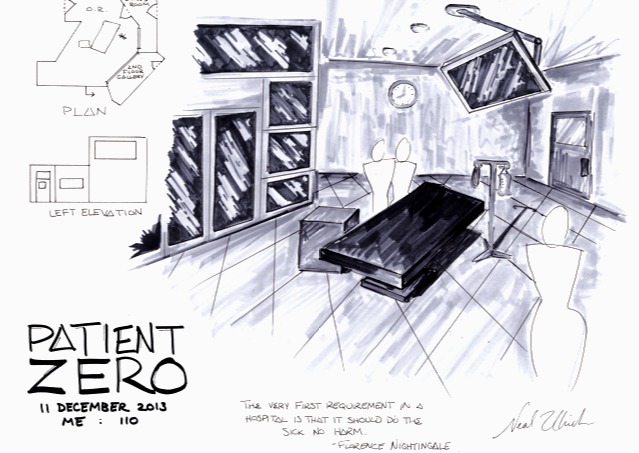 ROOM
O.R.
2ND
FLOOR
GALLERY
PLAN
LEFT ELEVATION
PATIENT
ZERO
11 DECEMBER 2013
ME : 110
THE VERY FIRST REQUIREMENT IN A
HOSPITAL IS THAT IT SHOULD DO THE
SICK NO HARM.
-FLORENCE NIGHTINGALE
Neal Ulrich